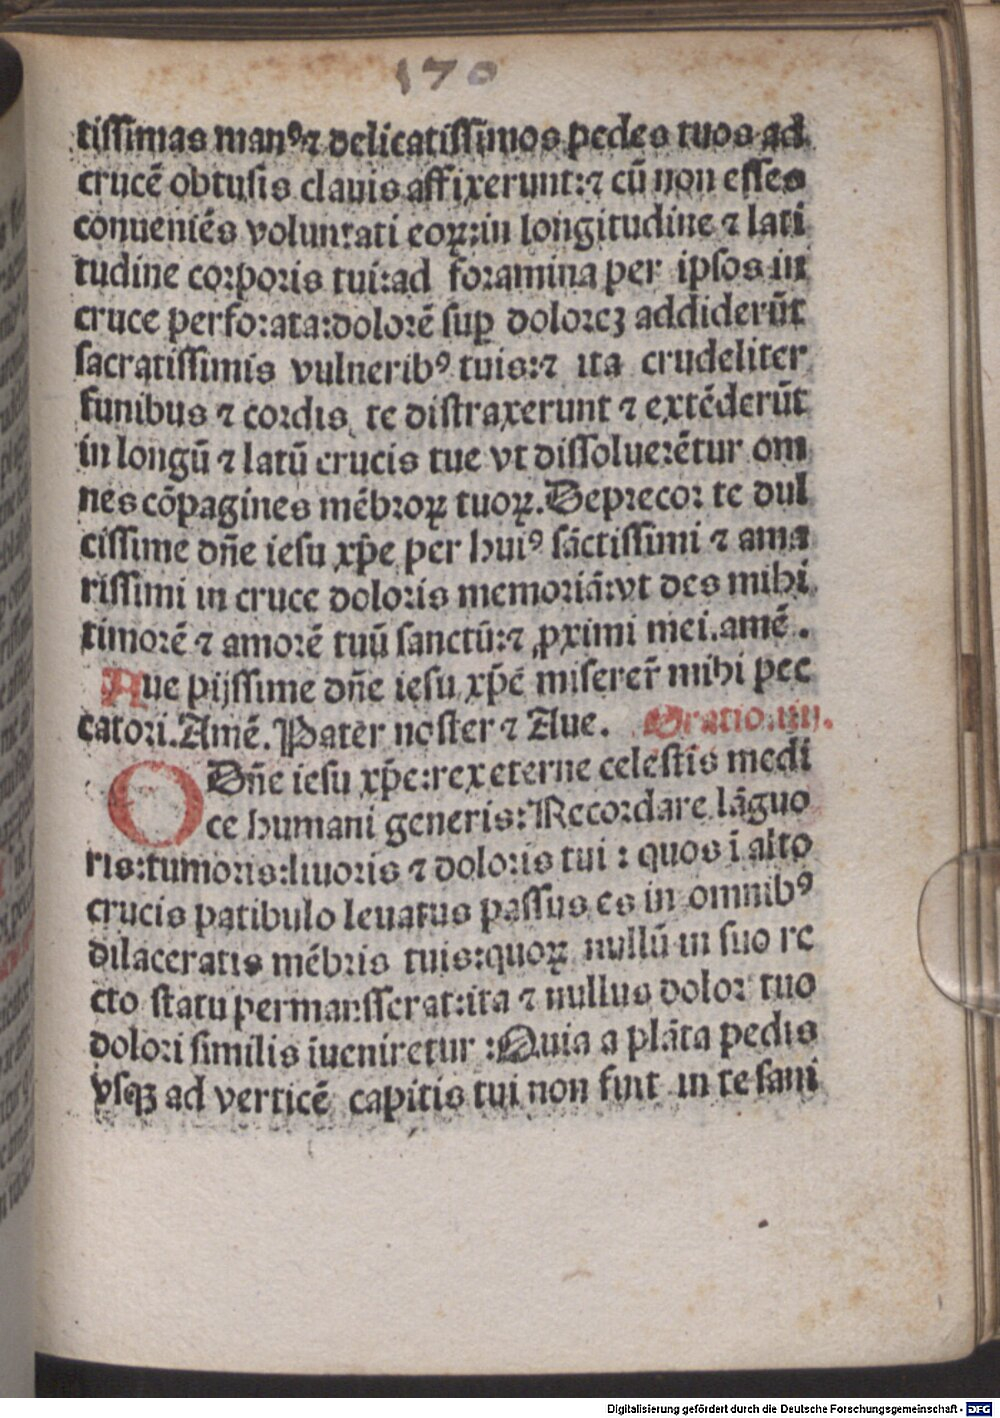 170
tissimas man⁹ ⁊ delicatissimos pedes tuos ad
crucē obtusis clauis affixerunt: ⁊ cū non esses
conueniēs voluntati eoꝝ: in longitudine ⁊ lati
tudine corporis tui: ad foramina per ipsos in
cruce perforata: dolorē suꝑ dolorēꝫ addiderūt
sacratissimis vulnerib⁹ tuis: ⁊ ita crudeliter
funibus ⁊ cordis te distraxerunt ⁊ extēderūt
in longū ⁊ latū crucis tue vt dissoluerētur om
nes cōpagines mēbroꝝ tuoꝝ. Deprecor te dul
cissime dn̄e iesu xp̄e per hui⁹ sāctissimi ⁊ ama
rissimi in cruce doloris memoriā: vt des mihi
timorē ⁊ amorē tuū sanctū: ⁊ ꝓximi mei. amē.
Aue pijssime dn̄e iesu xp̄ē miserer̄ mihi pec
catori. Amē. Pater noster ⁊ Aue. Oratio. iiij.
O Dn̄e iesu xp̄e: rex eterne celestis medi
ce humani generis: Recordare lāguo
ris: tumoris: liuoris ⁊ doloris tui: quos ī alto
crucis patibulo leuatus passus es in omnib⁹
dilaceratis mēbris tuis: quoꝝ nullū in suo re
cto statu permansserat: ita ⁊ nullus dolor tuo
dolori similis īueniretur: Quia a plāta pedis
vsqꝫ ad verticē capitis tui non fuit in te sani
Digitalisierung gefördert durch die Deutsche Forschungsgemeinschaft - DFG